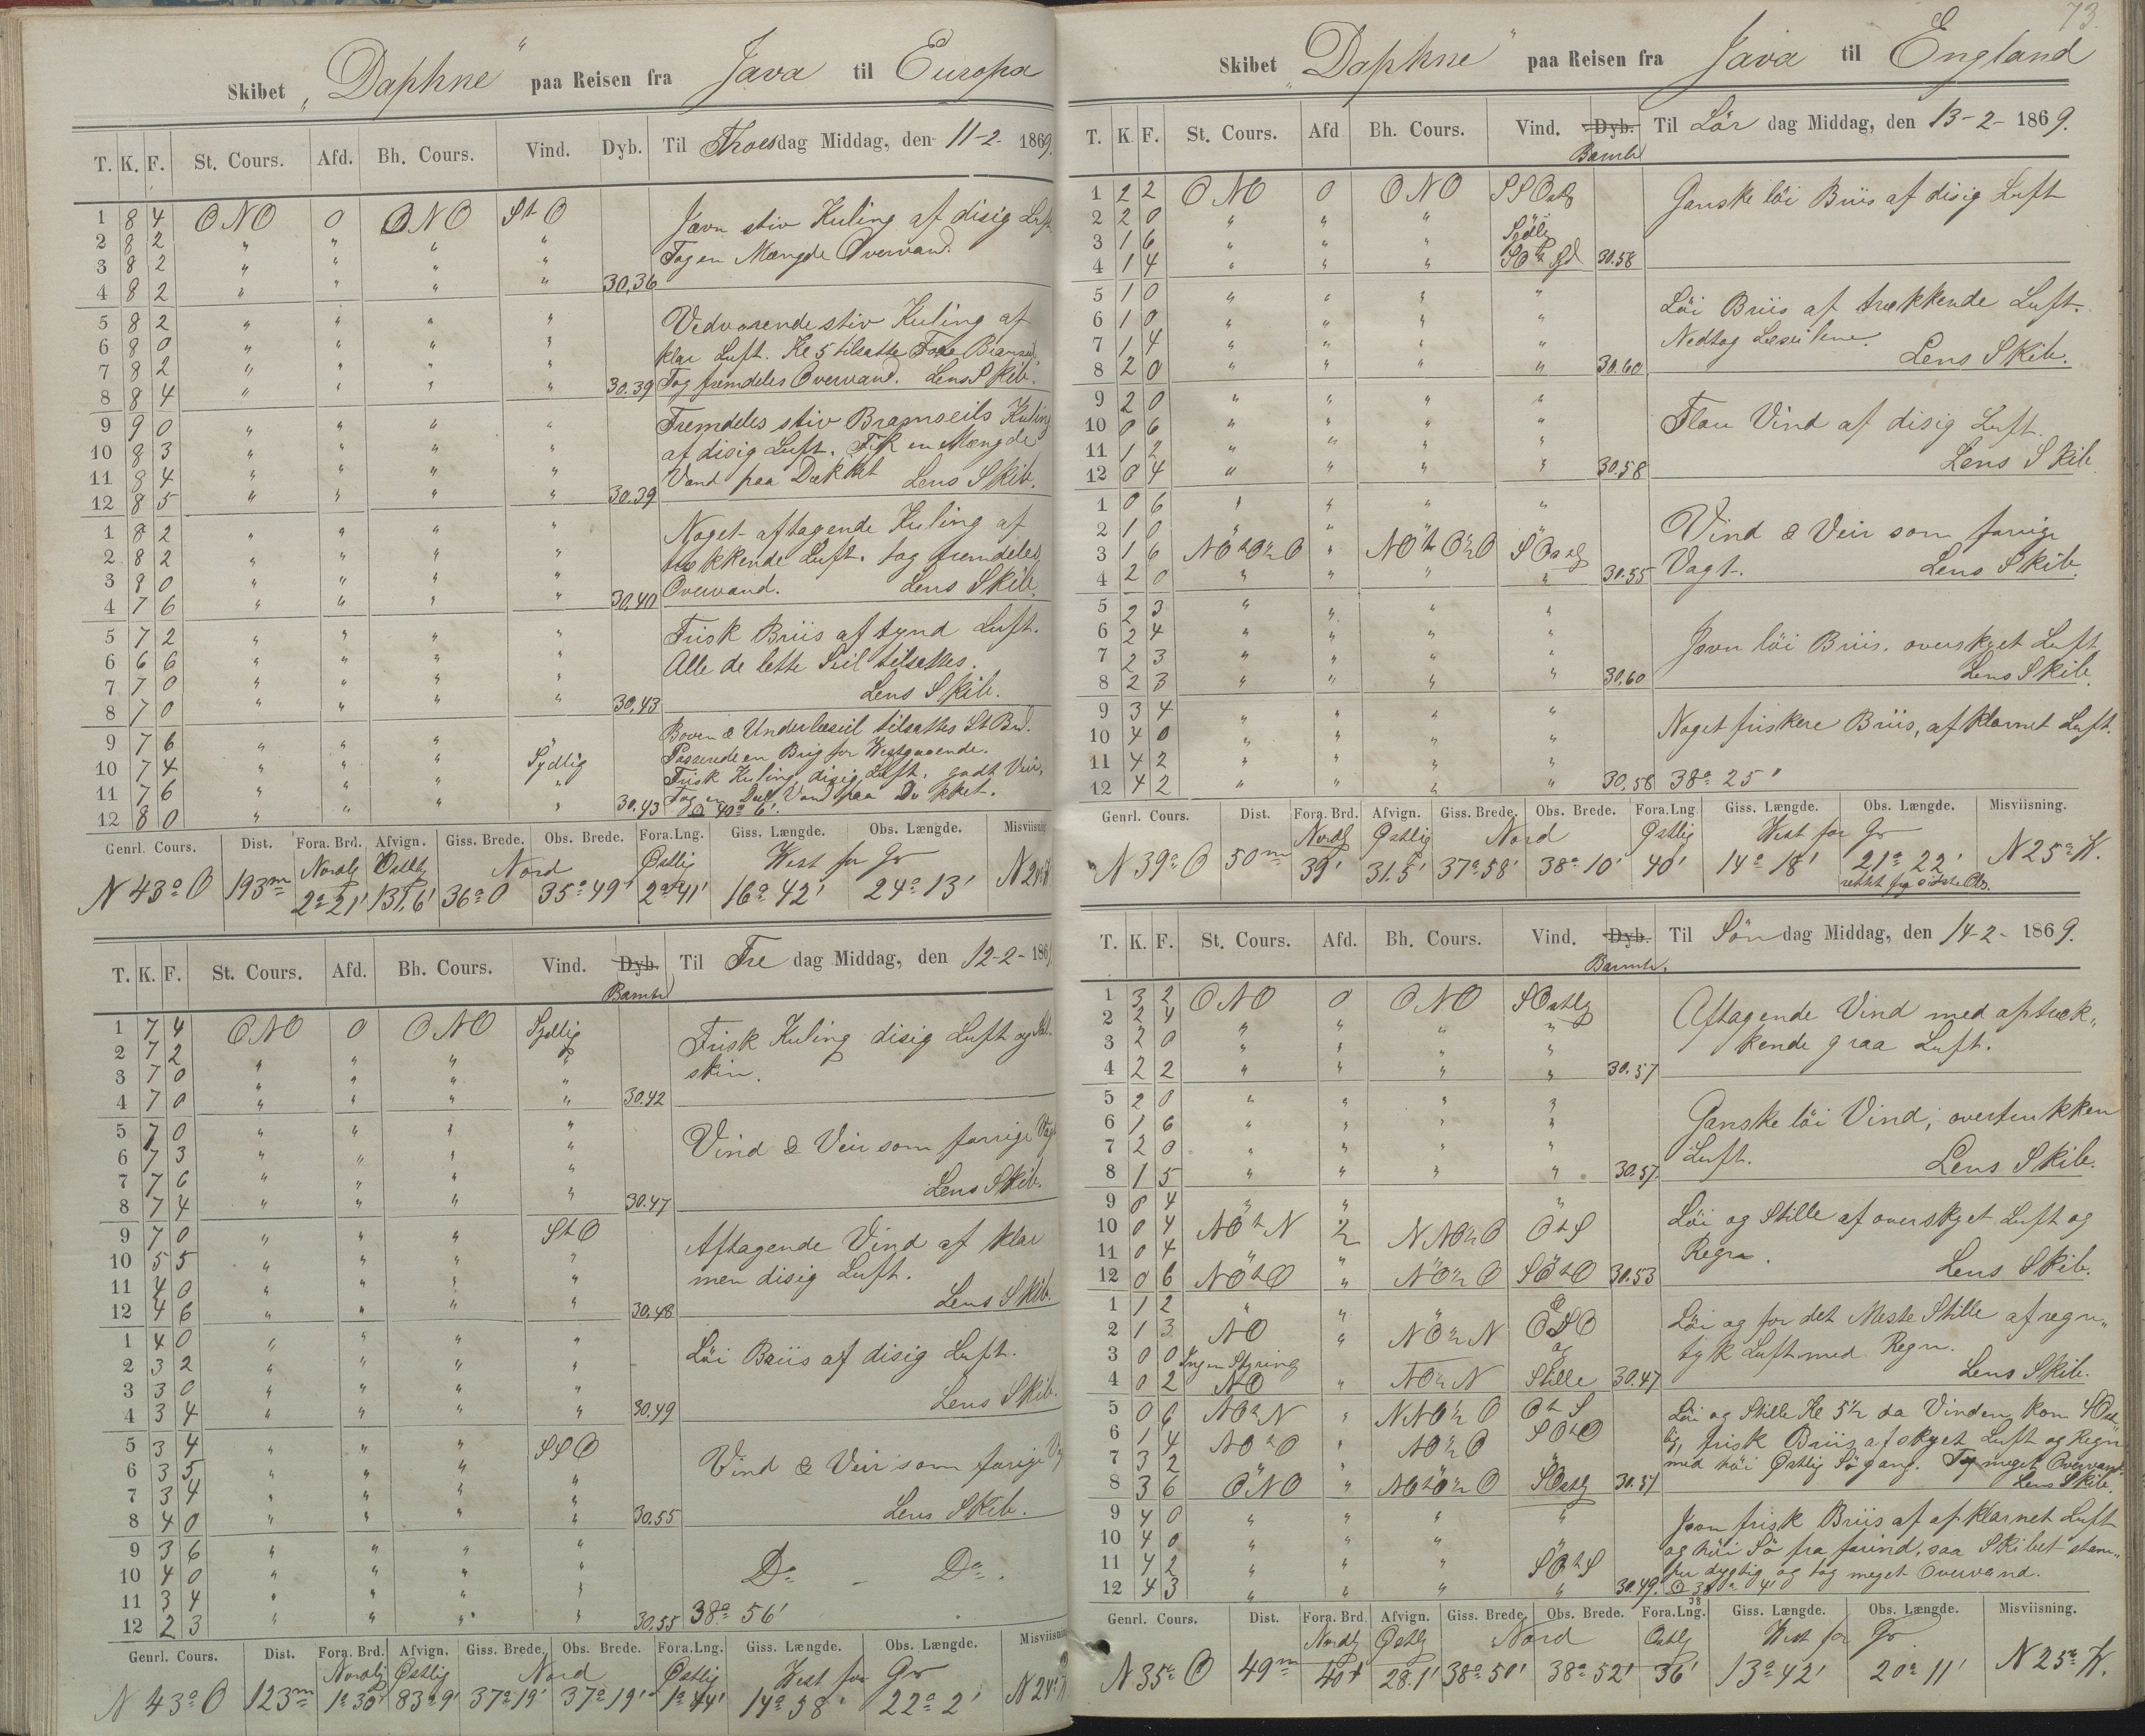 Skibet „Daphne“ paa Reisen fra Java til Europa
T. K. F. St. Cours. Afd. Bh. Cours. Vind. Dyb. Til Thorsdag Middag, den 11-2- 1869.
1 8 4 ONO 0 ONO StO Jævn stiv Kuling af disig Luft
2 8 2 " " " " Tog en Mængde Overvand.
3 8 2 " " " "
4 8 2 " " " " 30,36
5 8 2 " " " " Vedvarende stiv Kuling af
6 8 0 " " " " klar Luft. Kl 5 tilsatte Fore Bramseil.
7 8 2 " " " " 30.39 Tog fremdeles Overvand. Lens Skib.
8 8 4 " " " "
9 9 0 " " " " Fremdeles stiv Bramseils Kuling
10 8 3 " " " " af disig Luft. Fik en Mængde
11 8 4 " " " " Vand paa Dækket Lens Skib.
12 8 5 " " " " 30.39
1 8 2 " " " " Noget aftagende Kuling af
2 8 2 " " " " trækkende Luft. tog fremdeles
3 8 0 " " " " Overvand. Lens Skib.
4 7 6 " " " " 30,40
5 7 2 " " " " Frisk Briis af tynd Luft.
6 6 6 " " " " Alle de lette Seil tilsattes.
7 7 0 " " " " Lens Skib.
8 7 0 " " " " 30,43
9 7 6 " " " " Boven & Underlæseil tilsattes St Bd.
10 7 4 " " " Sydlig Passerede en Brig for Westgaaende.
11 7 6 " " " " Frisk Kuling disig Luft, godt Veir,
12 8 0 " " " " 30,43 Tog en Deel Vand paa Dækket.
40° 6'
Genrl. Cours. Dist. Fora. Brd. Afvign. Giss. Brede. Obs. Brede. Fora. Lng. Giss. Længde. Obs. Længde. Misviisning
Nordlg Østlig Nord Østlig West for Gr
N 43° O 193m 2° 21' 131,6' 36° 0 35° 49' 2° 41' 16° 42' 24° 13'
T. K. F. St. Cours. Afd. Bh. Cours. Vind. Dyb. Til Fredag Middag, den 12-2- 186
Barmtr
1 7 4 ONO 0 ONO Sydlig Frisk Kuling disig Luft og
2 7 2 " " " " skin.
3 7 0 " " " "
4 7 0 " " " " 30.42
5 7 0 " " " " Vind & Veir som forrige Vagt
6 7 3 " " " "
7 7 6 " " " " Lens Skib.
8 7 4 " " " " 30.47
9 7 0 " " " StO Aftagende Vind af klar
10 5 5 " " " " men disig Luft.
11 4 0 " " " " Lens Skib.
12 4 6 " " " " 30,48
1 4 0 " " " " Löi Briis af disig Luft.
2 3 2 " " " "
3 3 0 " " " " Lens Skib.
4 3 4 " " " " 30,49
5 3 4 " " " SSO Vind & Veir som forige
6 3 5 " " " "
7 3 4 " " " " Lens Skib.
8 4 0 " " " " 30.55
9 3 6 " " " "
10 4 0 " " " " Do - Do.
11 3 4 " " " "
12 2 3 " " " " 30,55 38° 56'
Genrl. Cours. Dist. Fora. Brd. Afvign. Giss. Brede. Obs. Brede. Fora. Lng. Giss. Længde. Obs. Længde. Misviisning
Nordlg Østlig Nord Østlig West for Gr
N 43° O 123m 1° 30' 83.9' 37° 19' 37° 19' 1° 44' 14° 58' 22° 2' N 24°
73.
Skibet „Daphne“ paa Reisen fra Java til England
T. K. F. St. Cours. Afd Bh. Cours. Vind. Dyb. Til Lör dag Middag, den 13-2- 1869.
Barmtr
1 2 2 ONO 0 ONO SSOstlg Ganske löi Briis af disig Luft
2 2 0 " " "
3 1 6 " " " Sydlg
4 1 4 " " " 30.58
5 1 0 " " " " Löi Briis af trækkende Luft.
6 1 0 " " " " Nedtog Læseilene.
7 1 4 " " " " Lens Skib.
8 2 0 " " " " 30.60
9 2 0 " " " " Flau Vind af disig Luft.
10 0 6 " " " "
11 1 2 " " " " Lens Skib
12 0 4 " " " " 30.58
1 0 6 " " " " Vind & Veir som forrige
2 1 0 " " "
3 1 6 NOtO½O " NOtO½O SOstlg Vagt. Lens Skib.
4 2 0 " " " " 30.55
5 2 3 " " " "
6 2 4 " " " " Jævn löi Briis, overskyet Luft
7 2 3 " " " " Lens Skib.
8 2 3 " " " " 30,60
9 3 4 " " " " Noget friskere Briis, afklarnet Luft.
10 4 0 " " " "
11 4 2 " " " "
12 4 2 " " " " 30,58 38° 25'
Genrl. Cours. Dist. Fora. Brd. Afvign. Giss. Brede. Obs. Brede. Fora. Lng. Giss. Længde. Obs. Længde. Misviisning.
Nordlg Østlig Nord Østlig West for Gr
N 39° O 50m 39' 31.5' 37° 58' 38° 10' 40' 14° 18' 21° 22' N 25° W.
rettet fra sidste Obs.
T. K. F. St. Cours. Afd. Bh. Cours. Vind. Dyb. Til Sön dag Middag, den 14-2- 1869.
Barmtr.
1 3 2 ONO 0 ONO SOstlg Aftagende Vind med optræk„
2 2 4 " " " " kende graa Luft.
3 2 0 " " " "
4 2 2 " " " " 30.57
5 2 0 " " " " Ganske löi Vind, overtrukken
6 1 6 " " " " Luft.
7 2 0 " " " " Lens Skib.
8 1 5 " " " " 30.57.
9 0 4 " " " " Löi og Stille af overskyet Luft og
10 0 4 NOtN ½ NNO½O OtS Regn.
11 0 4 " " Lens Skib.
12 0 6 NOtO " NO½O SOtO 30.53
1 1 2 " " " Löi og for det Meste Stille af regn„
2 1 3 NO " NO½N tyk Luft med Regn.
3 0 0 Ingen Styring og Lens Skib.
4 0 2 NO " NO½N Stille 30.47
5 0 6 NOtN " NNO½O OtS Löi og Stille Kl 5½ da Vinden kom SOst„
6 1 4 NOtO " NO½O SOtO lig, frisk Briis af skyet Luft og Regn
7 3 2 " " " med höi Østlig Sögang. Tog meget Overvand.
8 3 6 ONO " NOtO½O SOstlg 30.51 Lens Skib.
9 4 0 " " " " Jævn frisk Briis af afklarnet Luft
10 4 0 " " " og höi Sö fra forind, saa Skibet stam„
11 4 2 " " " SOtS per dygtig og tog meget Overvand.
12 4 3 " " " " 30.49.
Genrl. Cours. Dist. Fora. Brd. Afvign. Giss. Brede. Obs. Brede. Fora. Lng. Giss. Længde. Obs. Længde. Misviisning.
Nordlg Østlg Nord Østlg West for Gr
N 35° O 49m 40' 28.1' 38° 50' 38° 52' 36' 13° 42' 20° 11' N 25° W.